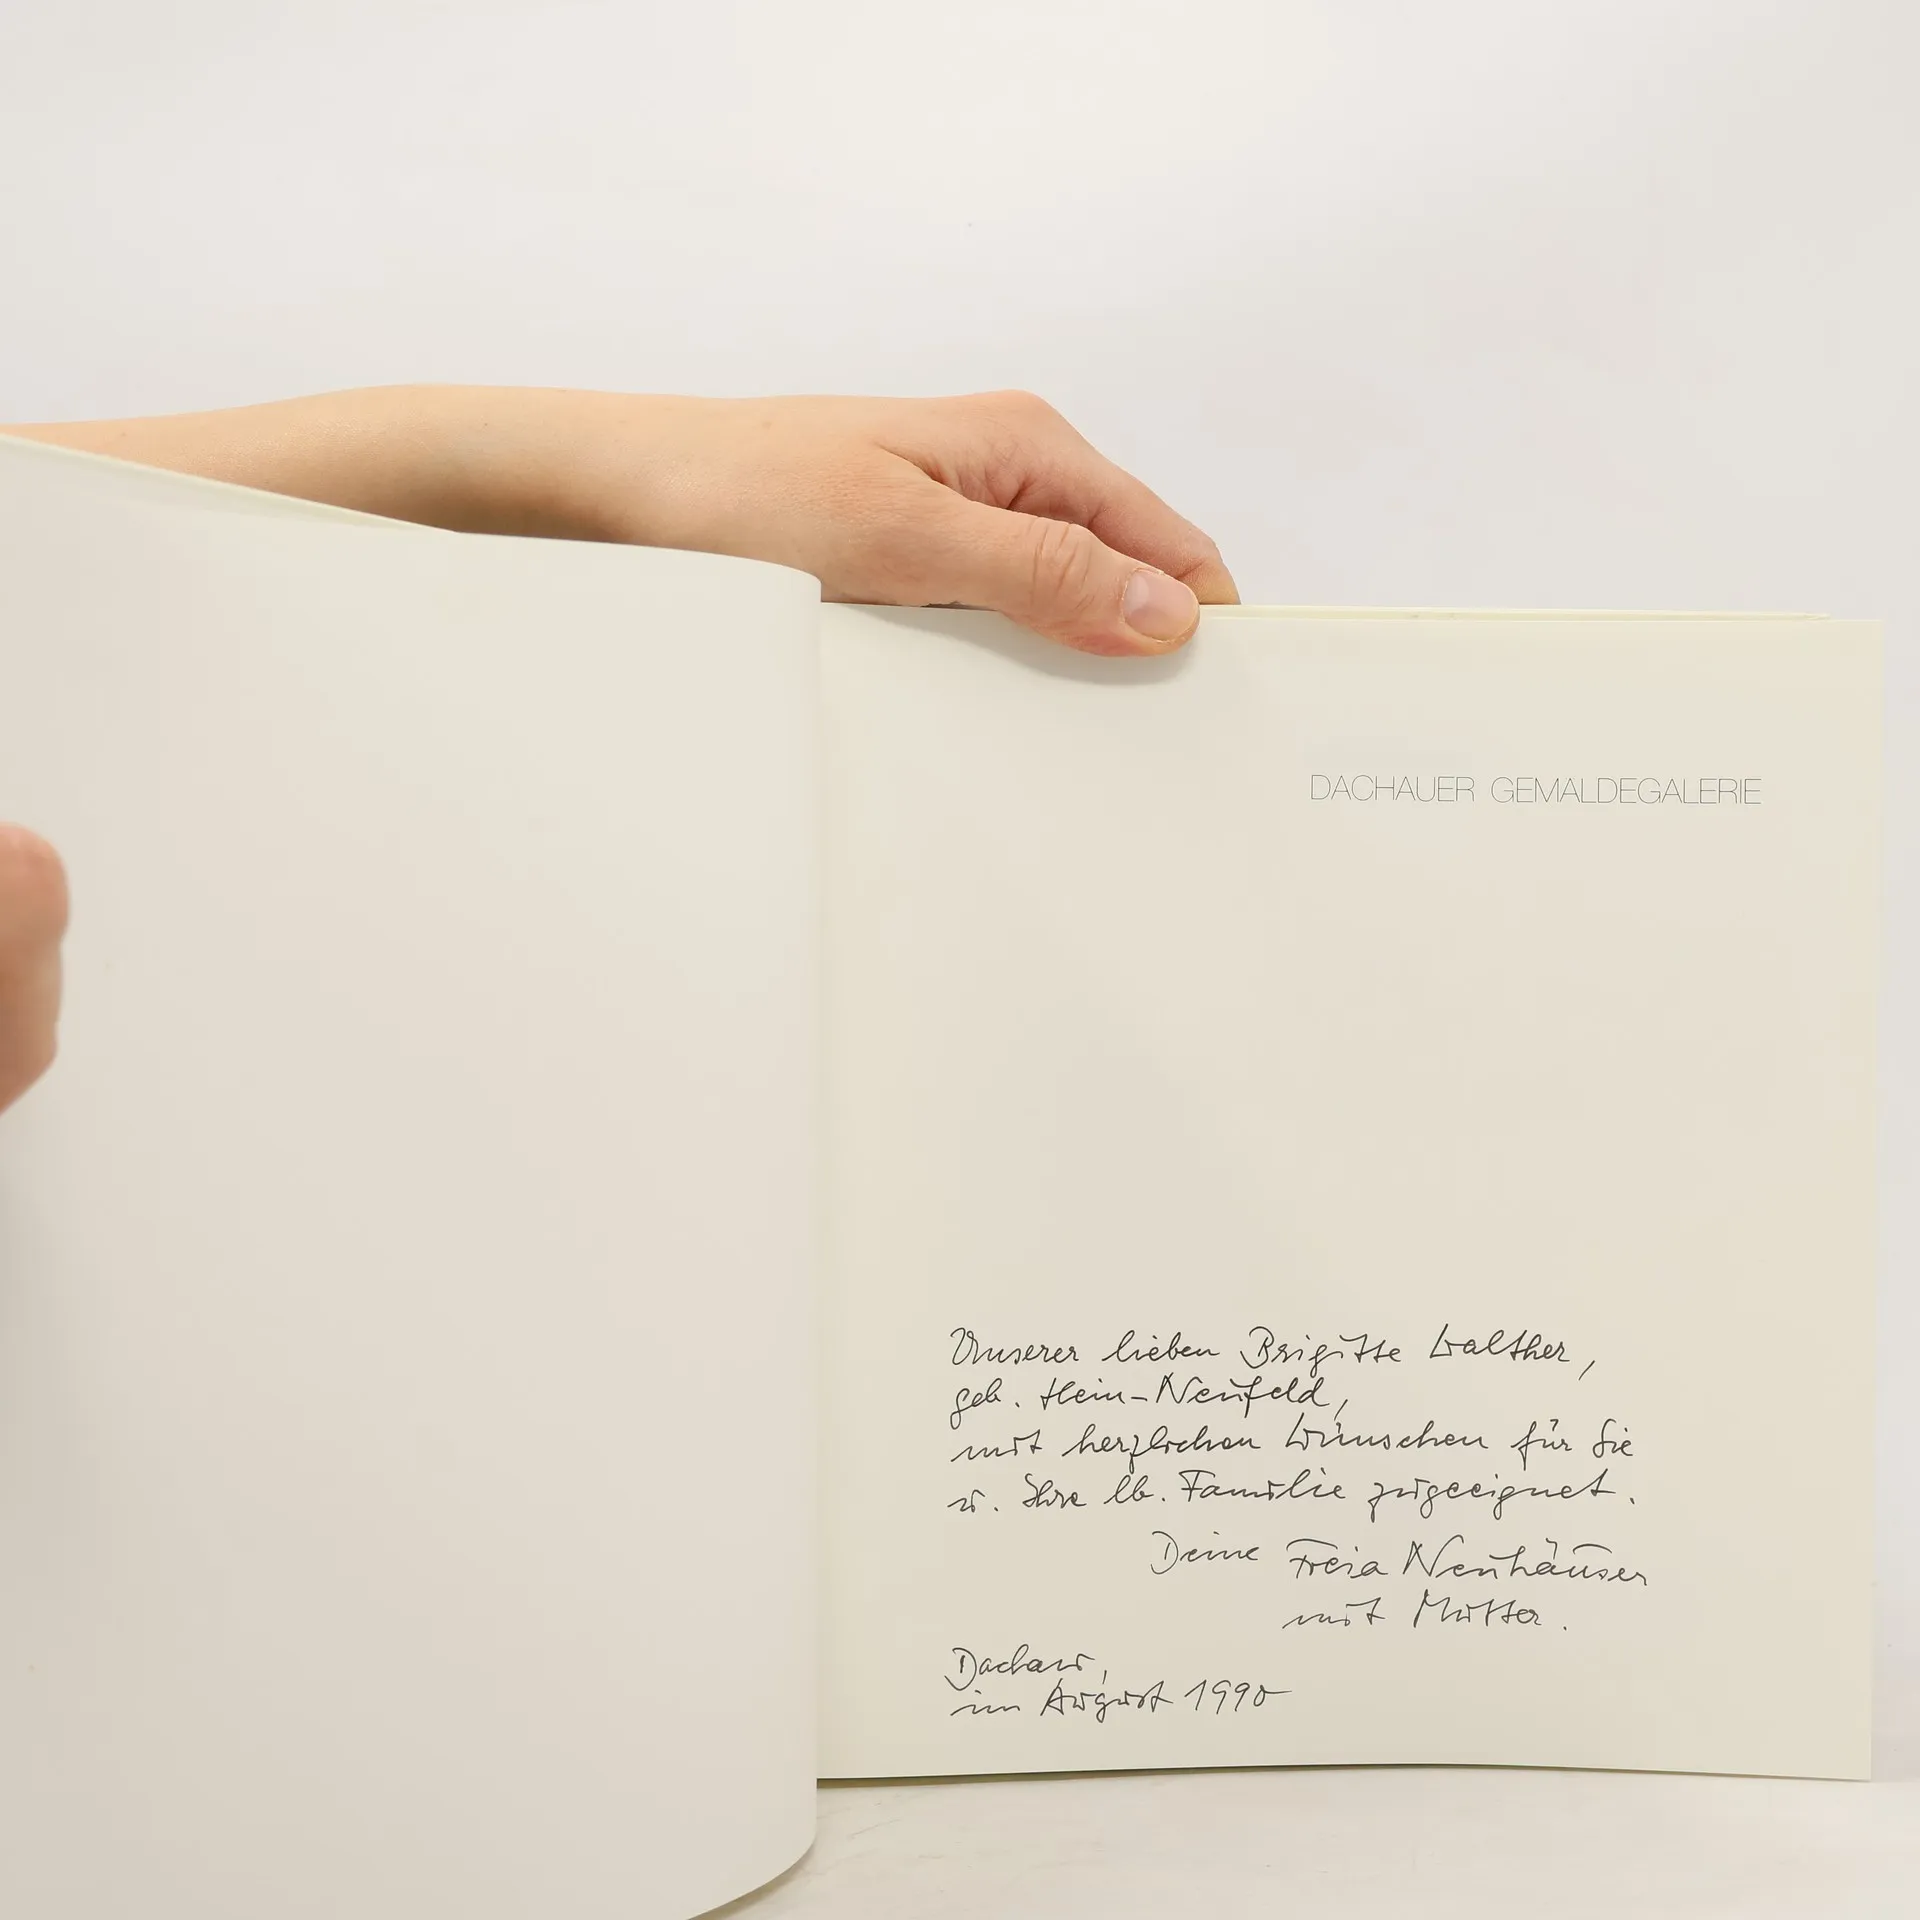 DACHAUER GEMÄLDEGALERIE
Unserer lieben Brigitte Walther,
geb. Hein-Neufeld,
mit herzlichen Wünschen für Sie
u. Ihre lb. Familie zugeeignet.
Deine Freia Neuhäuser
mit Mutter.
Dachau,
im August 1990